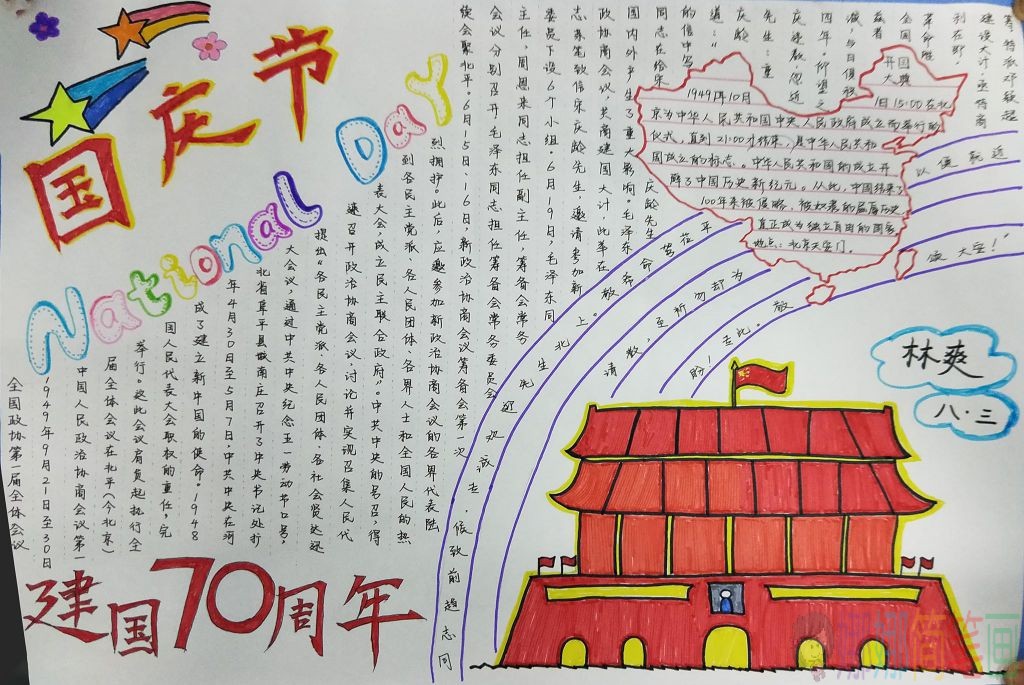 国庆节
National Day
全国政协第一届全体会议
1949年9月21日至30日
中国人民政治协商会议第一
届全体会议在北平(今北京)
举行。这此会议肩负起执行全
国人民代表大会职权的重任,完
成了建立新中国的使命。1948
年4月30日至5月7日,中共中央在河
北省阜平县城南庄召开了中央书记处扩
大会议,通过中共中央纪念五一劳动节口号,
提出“各民主党派、各人民团体、各社会贤达迅
速召开政治协商会议,讨论并实现召集人民代
表大会,成立民主联合政府”。中共中央的号召,得
到各民主党派、各人民团体、各界人士和全国人民的热
烈拥护。此后,应邀参加新政治协商会议的各界代表陆
续会聚北平。6月15日、16日,新政治协商会议筹备会第一次
会议分别召开,毛泽东同志担任筹备会常务委员会
主任,周恩来同志担任副主任。筹备会常务
委员下设6个小组。6月19日,毛泽东同
志亲笔致信宋庆龄先生,邀请参加新
政治协商会议,共商建国大计,此举在
国内外产生了重大影响。毛泽东
同志在给宋庆龄先生
的信中写
道:“
庆龄
先生:重
庆违教,忽近
四年。仰望之
诚,与日俱积。
兹者
全国
革命胜
利在即,
建设大计,亟待商
筹,特派邓颖超
同志趋前致候,专诚欢迎先生北上。敬希命驾莅平
以便就近请教,至祈勿却为盼!
此。敬
大安!”
开国
大典
1949年10月1日15:00在北
京为中华人民共和国中央人民政府成立而举行的
仪式,直到21:00才结束,是中华人民共和
国成立的标志。中华人民共和国的成立开
辟了中国历史新纪元。从此,中国结束了
100年来被侵略、被奴隶的屈辱历史
真正成为独立自由的国家
地点:北京天安门。
林爽
八·三
建国70周年
简笔画